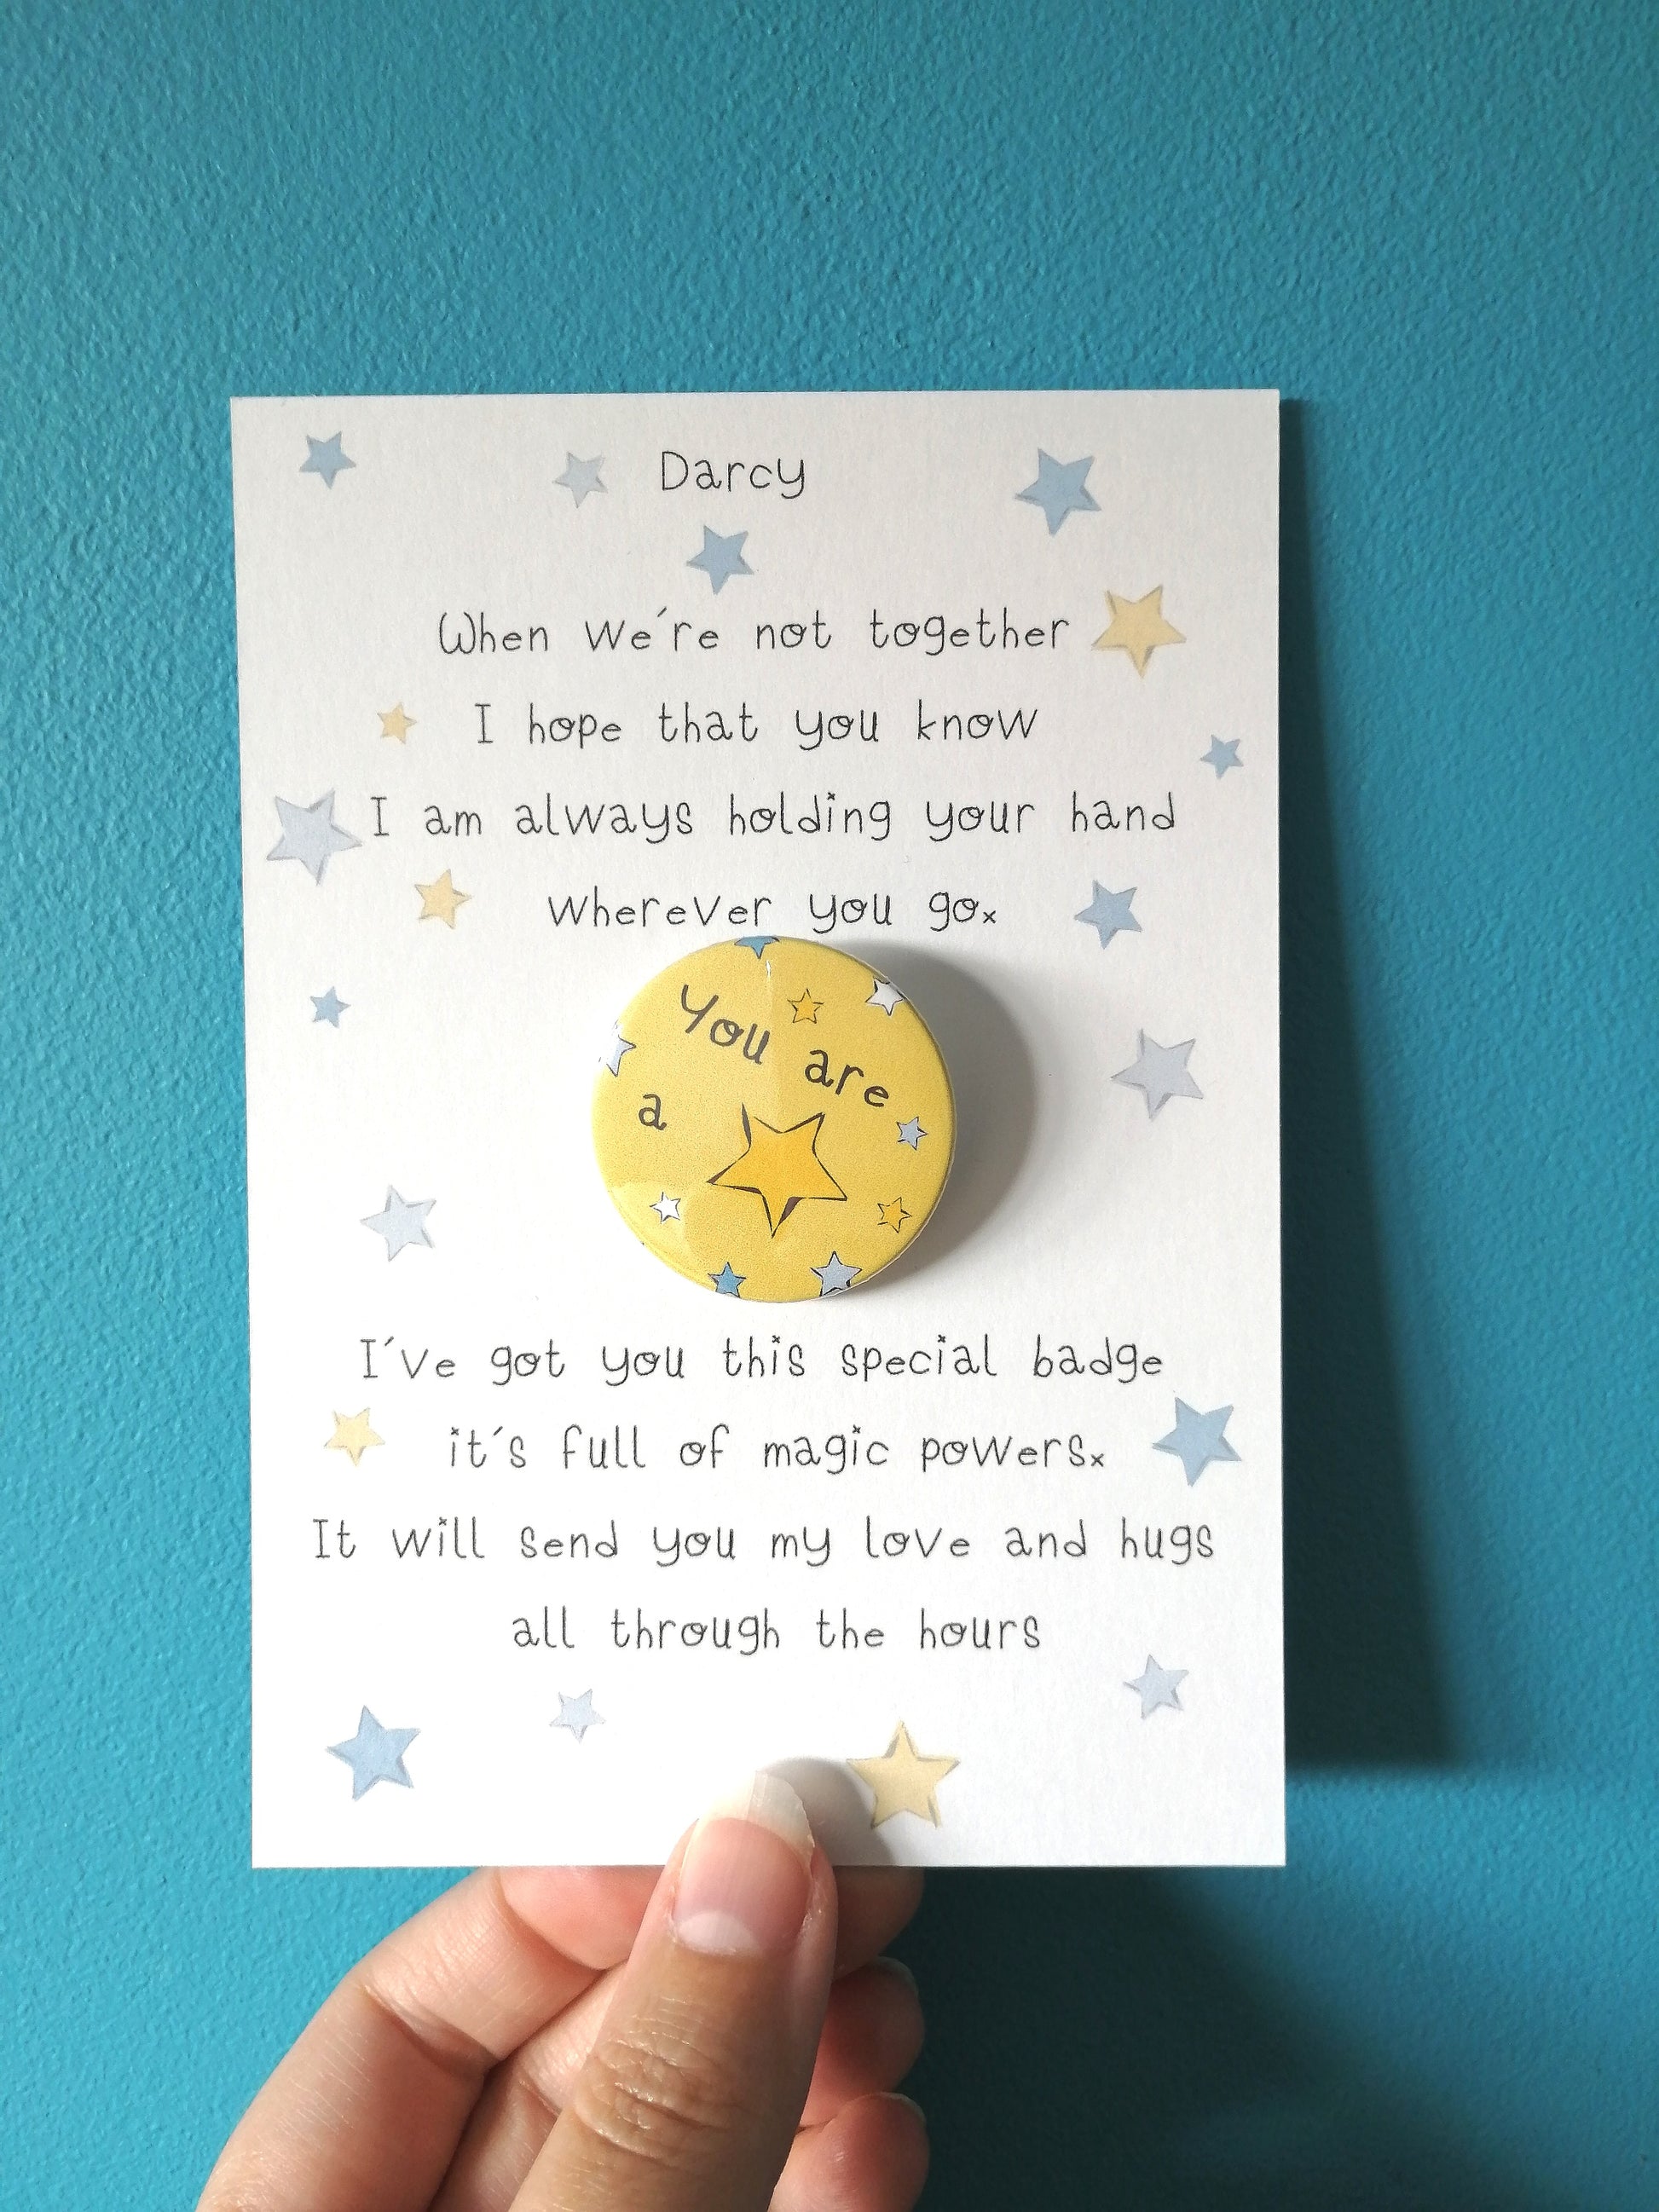 Darcy
When we're not together
I hope that you know
I am always holding your hand
wherever you go.
You are
a
I've got you this special badge
it's full of magic powers.
It will send you my love and hugs
all through the hours